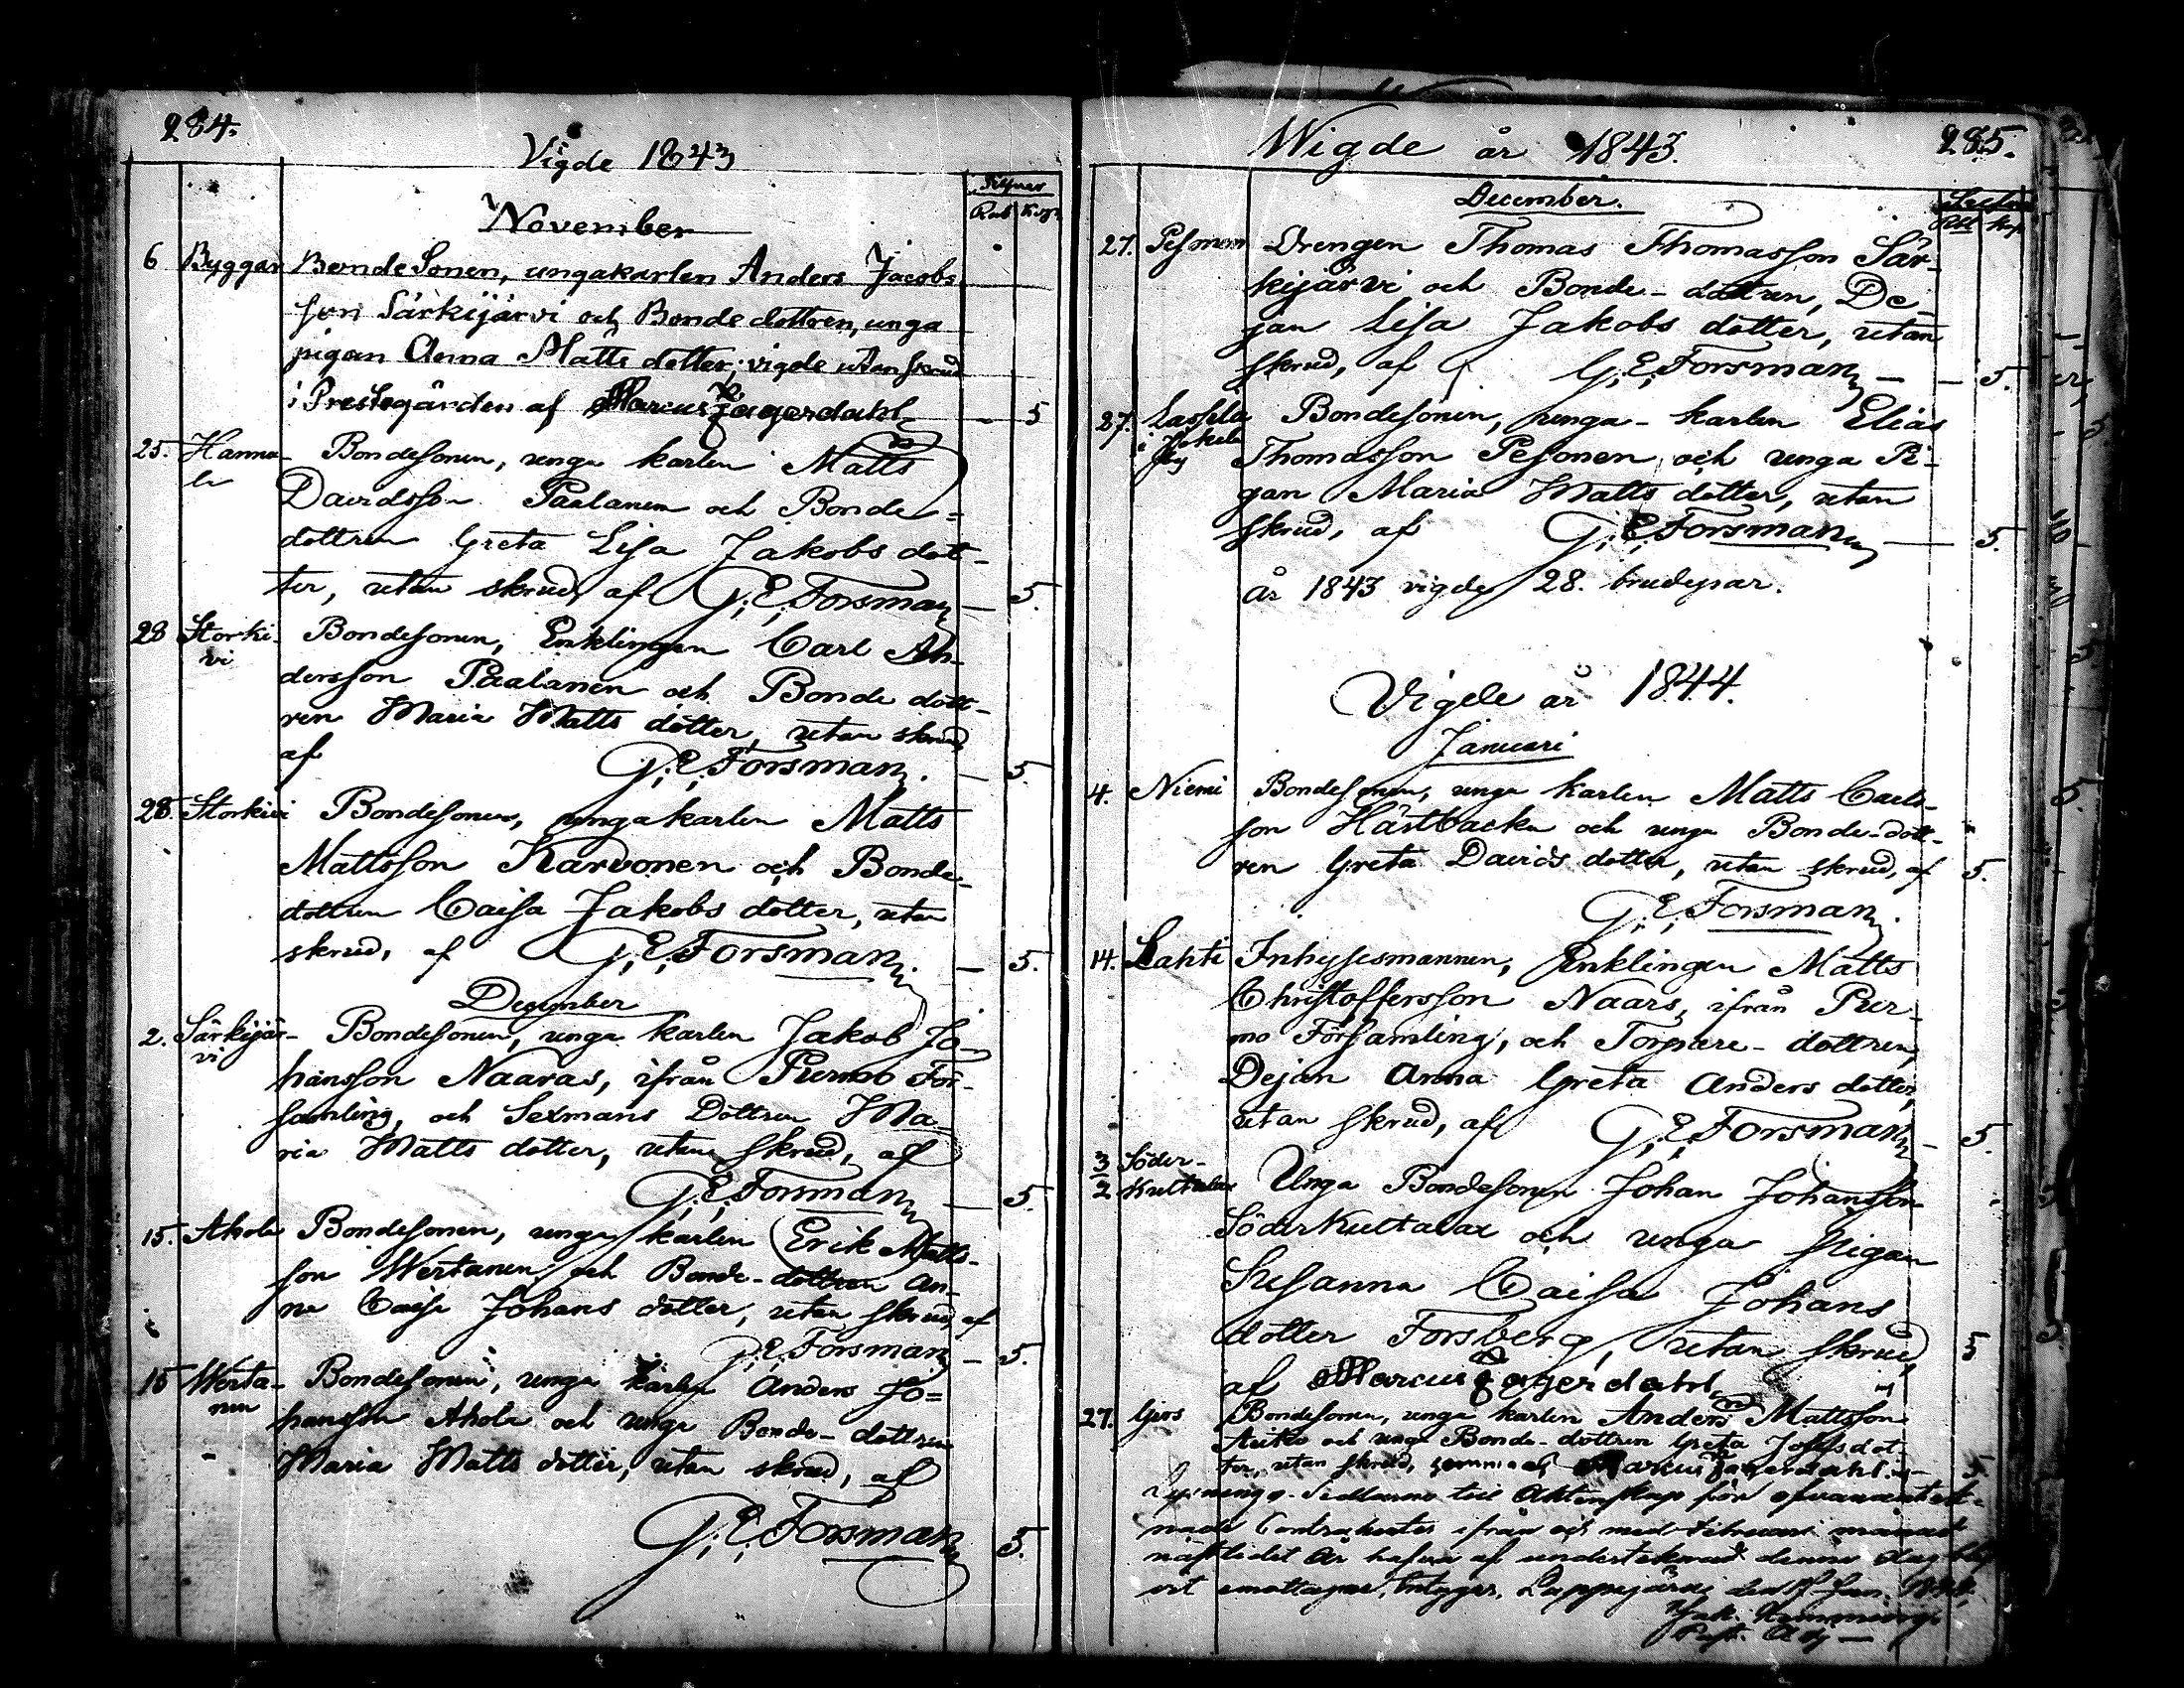 284.
Vigde 1843
Rub Kop
November
6 Byggar Bonde Sonen, ungakarlen Anders Jacobs
son Särkijärvi och Bonde dottren, unga
pigan Anna Matts dotter, vigde utan skrud
i Prestegården af Marcus Fagerdahl 5
25. Hanna- Bondesonen, unga karlen Matts
la Davidsson Paalanen och Bonde=
dottren Greta Lisa Jakobs dot-
ter, utan skrud, af G. E. Forsman 5.
28 Storki- Bondesonen, Enklingen Carl An-
vi dersson Paalanen och Bonde dott-
ren Maria Matts dotter, utan skrud,
af G. E. Forsman. 5.
28. Storkivi Bondesonen, unga karlen Matts
Mattsson Karvonen och Bonde-
dottren Caisa Jakobs dotter, utan
skrud, af G. E. Forsman. 5.
December
2. Särkijär- Bondesonen, unga karlen Jakob Jo-
vi hansson Naaras, ifrån Purmo För-
samling, och Sexmans Dottren Ma-
ria Matts dotter, utan skrud, af
G. E. Forsman 5.
15. Ahola Bondesonen, unga karlen Erik Matts-
son Wertanen och Bonde-dottren An-
na Caisa Johans dotter, utan skrud, af
G. E. Forsman 5.
15 Werta- Bondesonen, unga karlen Anders Jo=
nen hansson Ahola och unga Bonde-dottren
Maria Matts dotter, utan skrud, af
G. E. Forsman 5.
Wigde år 1843. 285.
December.
Rbl Kop
27. Pesonen Drengen Thomas Thomasson Sär-
kijärvi och Bonde-dottren, De-
jan Lisa Jakobs dotter, utan
skrud, af G. E. Forsman 5.
27. Lassila Bondesonen, unga-karlen Elias
i Thomasson Pesonen och unga Pi-
by gan Maria Matts dotter, utan
skrud, af G. E. Forsman 5.
År 1843 vigde 28. brudepar.
Vigde år 1844.
Januari
4. Niemi Bondesonen, unga karlen Matts Carls-
son Hästbacka och unga Bonde-dott-
ren Greta Davids dotter, utan skrud, af 5.
G. E. Forsman.
14. Lahti Inhysesmannen, Enklingen Matts
Christoffersson Naars, ifrån Pur-
mo Församling, och Torpare-dottren,
Dejan Anna Greta Anders dotter,
utan skrud, af G. E. Forsman 5.
3/2 Söder-
Kultalax Unga Bondesonen Johan Johansson
Söderkultalax och unga Pigan
Susanna Caisa Johans
dotter Forsberg, utan skrud, 5
af Marcus Fagerdahl
27. Gers Bondesonen, unga karlen Anders Mattsson
och unga Bonde-dottren Greta Josefsdot-
ter, utan skrud, af Marcus Fagerdahl 5.
Lysnings-Sedlarne till Äktenskap för ofvananteck-
nade Contrahenter ifrån och med Februari månad
näst­lidet år hafva af undertecknad denna dag blif-
vit emottagne, intygar, Lappajärvi den Jan. 1844.
Past. Adj